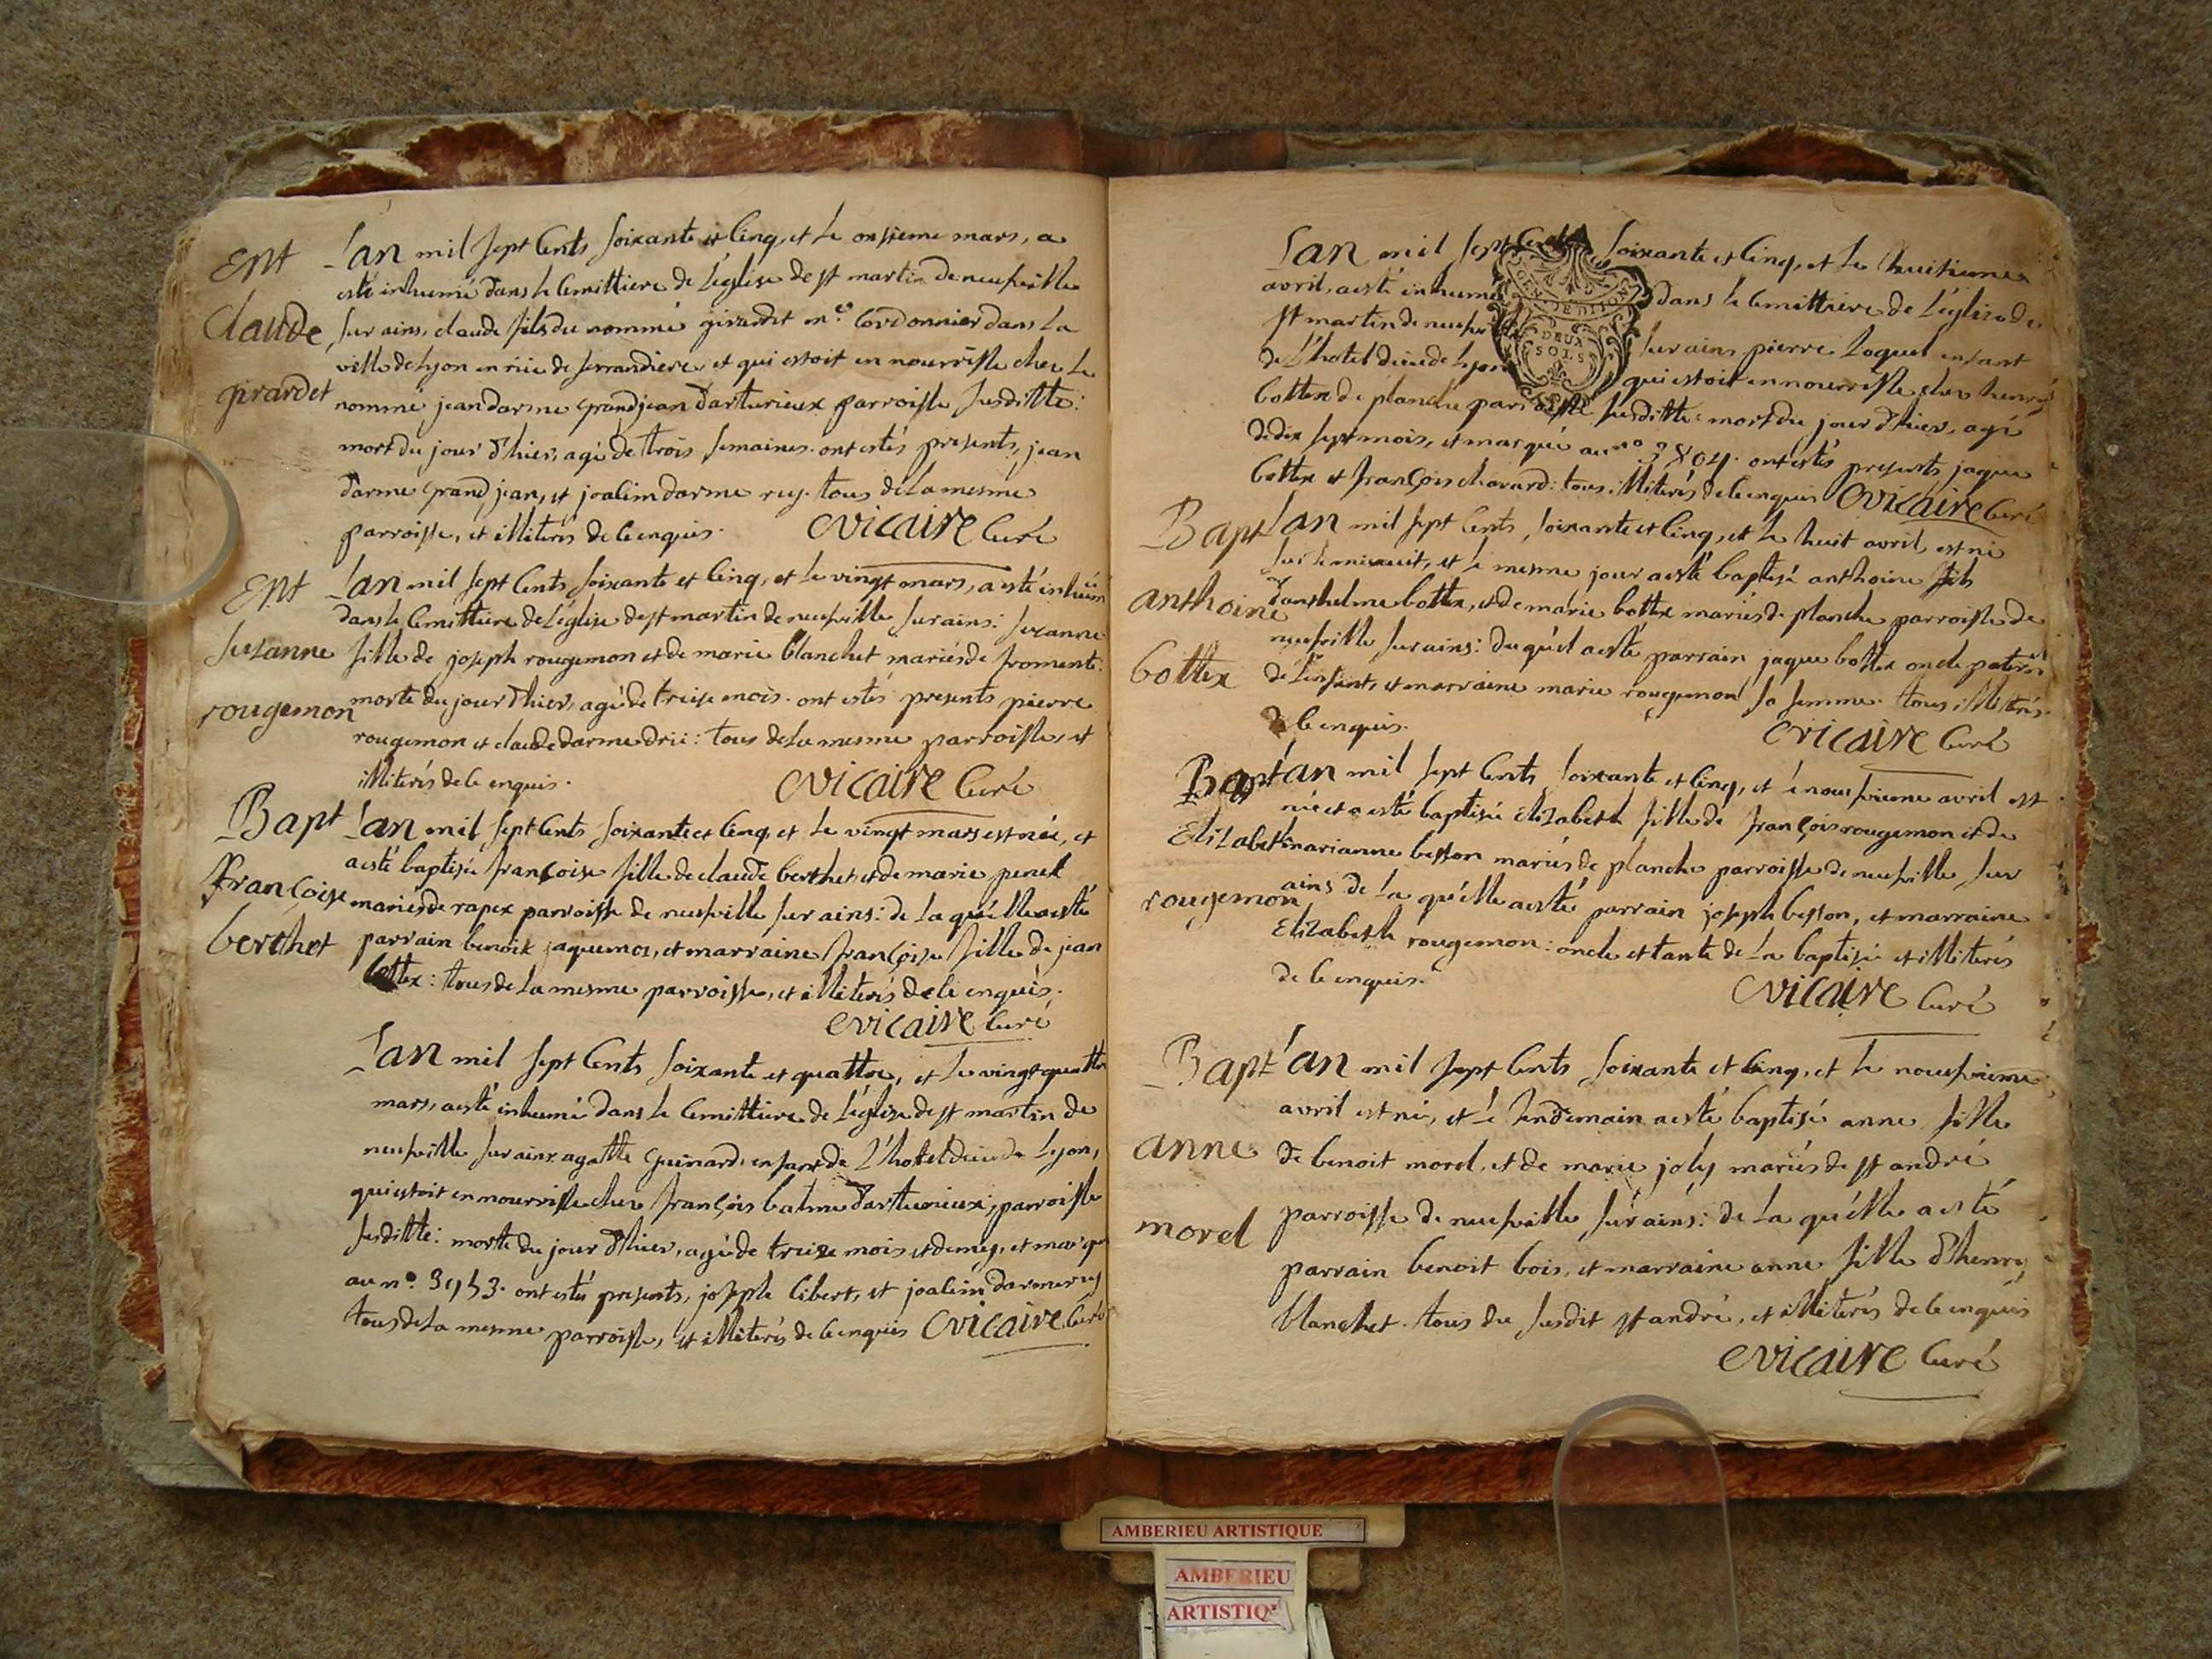 Ent
Claude
girardet
Lan mil sept Cents soixante et Cinq, et Le onsieme mars, a
esté inhumé dans le Cemittiere de L'église de st martin de neufville
sur ains, claude fils du nommé girardet m.e Cordonnier dans La
ville de Lyon en rüe de ferrandiere, et qui estoit en nourrisse chez Le
nommé jean darme grand jean darturieux parroisse susditte:
mort du jour d'hier, agé de trois semaines. ont estés presents, jean
darme grand jean, et joalim darme rey. tous de La mesme
parroisse, et illiterés de Ce enquis. Evicaire Curé
Ent
Suzanne
rougemon
Lan mil sept Cents soixante et Cinq, et Le vingt mars, a esté inhumé
dans le Cemittiere de L'église de st martin de neufville sur ains: suzanne
fille de joseph rougemon et de marie blanchet mariés de fromente:
morte du jour d'hier, agé de treise mois. ont estés presents pierre
rougemon et claude darme drie: tous de La mesme parroisse, et
illiterés de Ce enquis. Evicaire Curé
Bapt
françoise
berthet
Lan mil sept Cents soixante et Cinq, et Le vingt mars est née, et
a esté baptisée françoise fille de claude berthet et de marie penet
mariés de rapex parroisse de neufville sur ains: de La qu'elle a esté
parrain benoit jaquemoz, et marraine françoise fille de jean
bottex: tous de La mesme parroisse, et illiterés de Ce enquis.
Evicaire Curé
Lan mil sept Cents soixante et quattre, et Le vingt quattre
mars, a esté inhumé dans le Cemittiere de L'église de st martin de
neufville sur ains agatte guinard, enfant de L'hotel dieu de Lyon,
qui estoit en nourrisse chez françois balme darturieux, parroisse
susditte: morte du jour d'hier, agé de treize mois et demy, et marqué
au n.o 3953. ont estés presents, joseph Libert, et joalim darme rey
tous de La mesme parroisse, et illiterés de Ce enquis Evicaire Curé
Lan mil sept Cents soixante et Cinq, et Le huitieme
avril, a esté inhumé dans le Cemittiere de L'église de
st martin de neufville sur ains pierre Loquet enfant
de L'hotel dieu de Lyon qui estoit en nourrisse chez henry
bottex de planche parroisse susditte: mort du jour d'hier, agé
de dix sept mois, et marqué au n.o 3804. ont estés presents jaque
bottex et françois chavard: tous illiterés de Ce enquis Evicaire Curé
GEN. DE DIJON
DEUX
SOLS
Bapt
anthoine
bottex
Lan mil sept Cents, soixante et Cinq, et Le huit avril, est né
sur le minuit, et le mesme jour a esté baptisé anthoine fils
d'anthelme bottex, et de marie bottex mariés de planche parroisse de
neufville sur ains: du qu'el a esté parrain jaque bottex oncle paternel
de L'enfant, et marraine marie rougemon sa femme. tous illiterés.
de Ce enquis.
Evicaire Curé
Bapt
Elizabeth
rougemon
Lan mil sept Cents soixante et Cinq, et Le neufvieme avril est
née et a esté baptisée Elizabeth fille de françois rougemon et de
marianne besson mariés de planche parroisse de neufville sur
ains de La qu'elle a esté parrain joseph besson, et marraine
Elizabeth rougemon: oncle et tante de La baptisée et illiterés
de Ce enquis.
Evicaire Curé
Bapt
anne
morel
Lan mil sept Cents soixante et Cinq, et Le neufvieme
avril est né, et Le Lendemain a esté baptisé anne fille
de benoit morel, et de marie joly mariés de st andré
parroisse de neufville sur ains: de La qu'elle a esté
parrain benoit bois, et marraine anne fille d'henry
blanchet. tous du susdit st andré, et illiterés de Ce enquis
Evicaire Curé
AMBERIEU ARTISTIQUE
AMBERIEU
ARTISTIQ